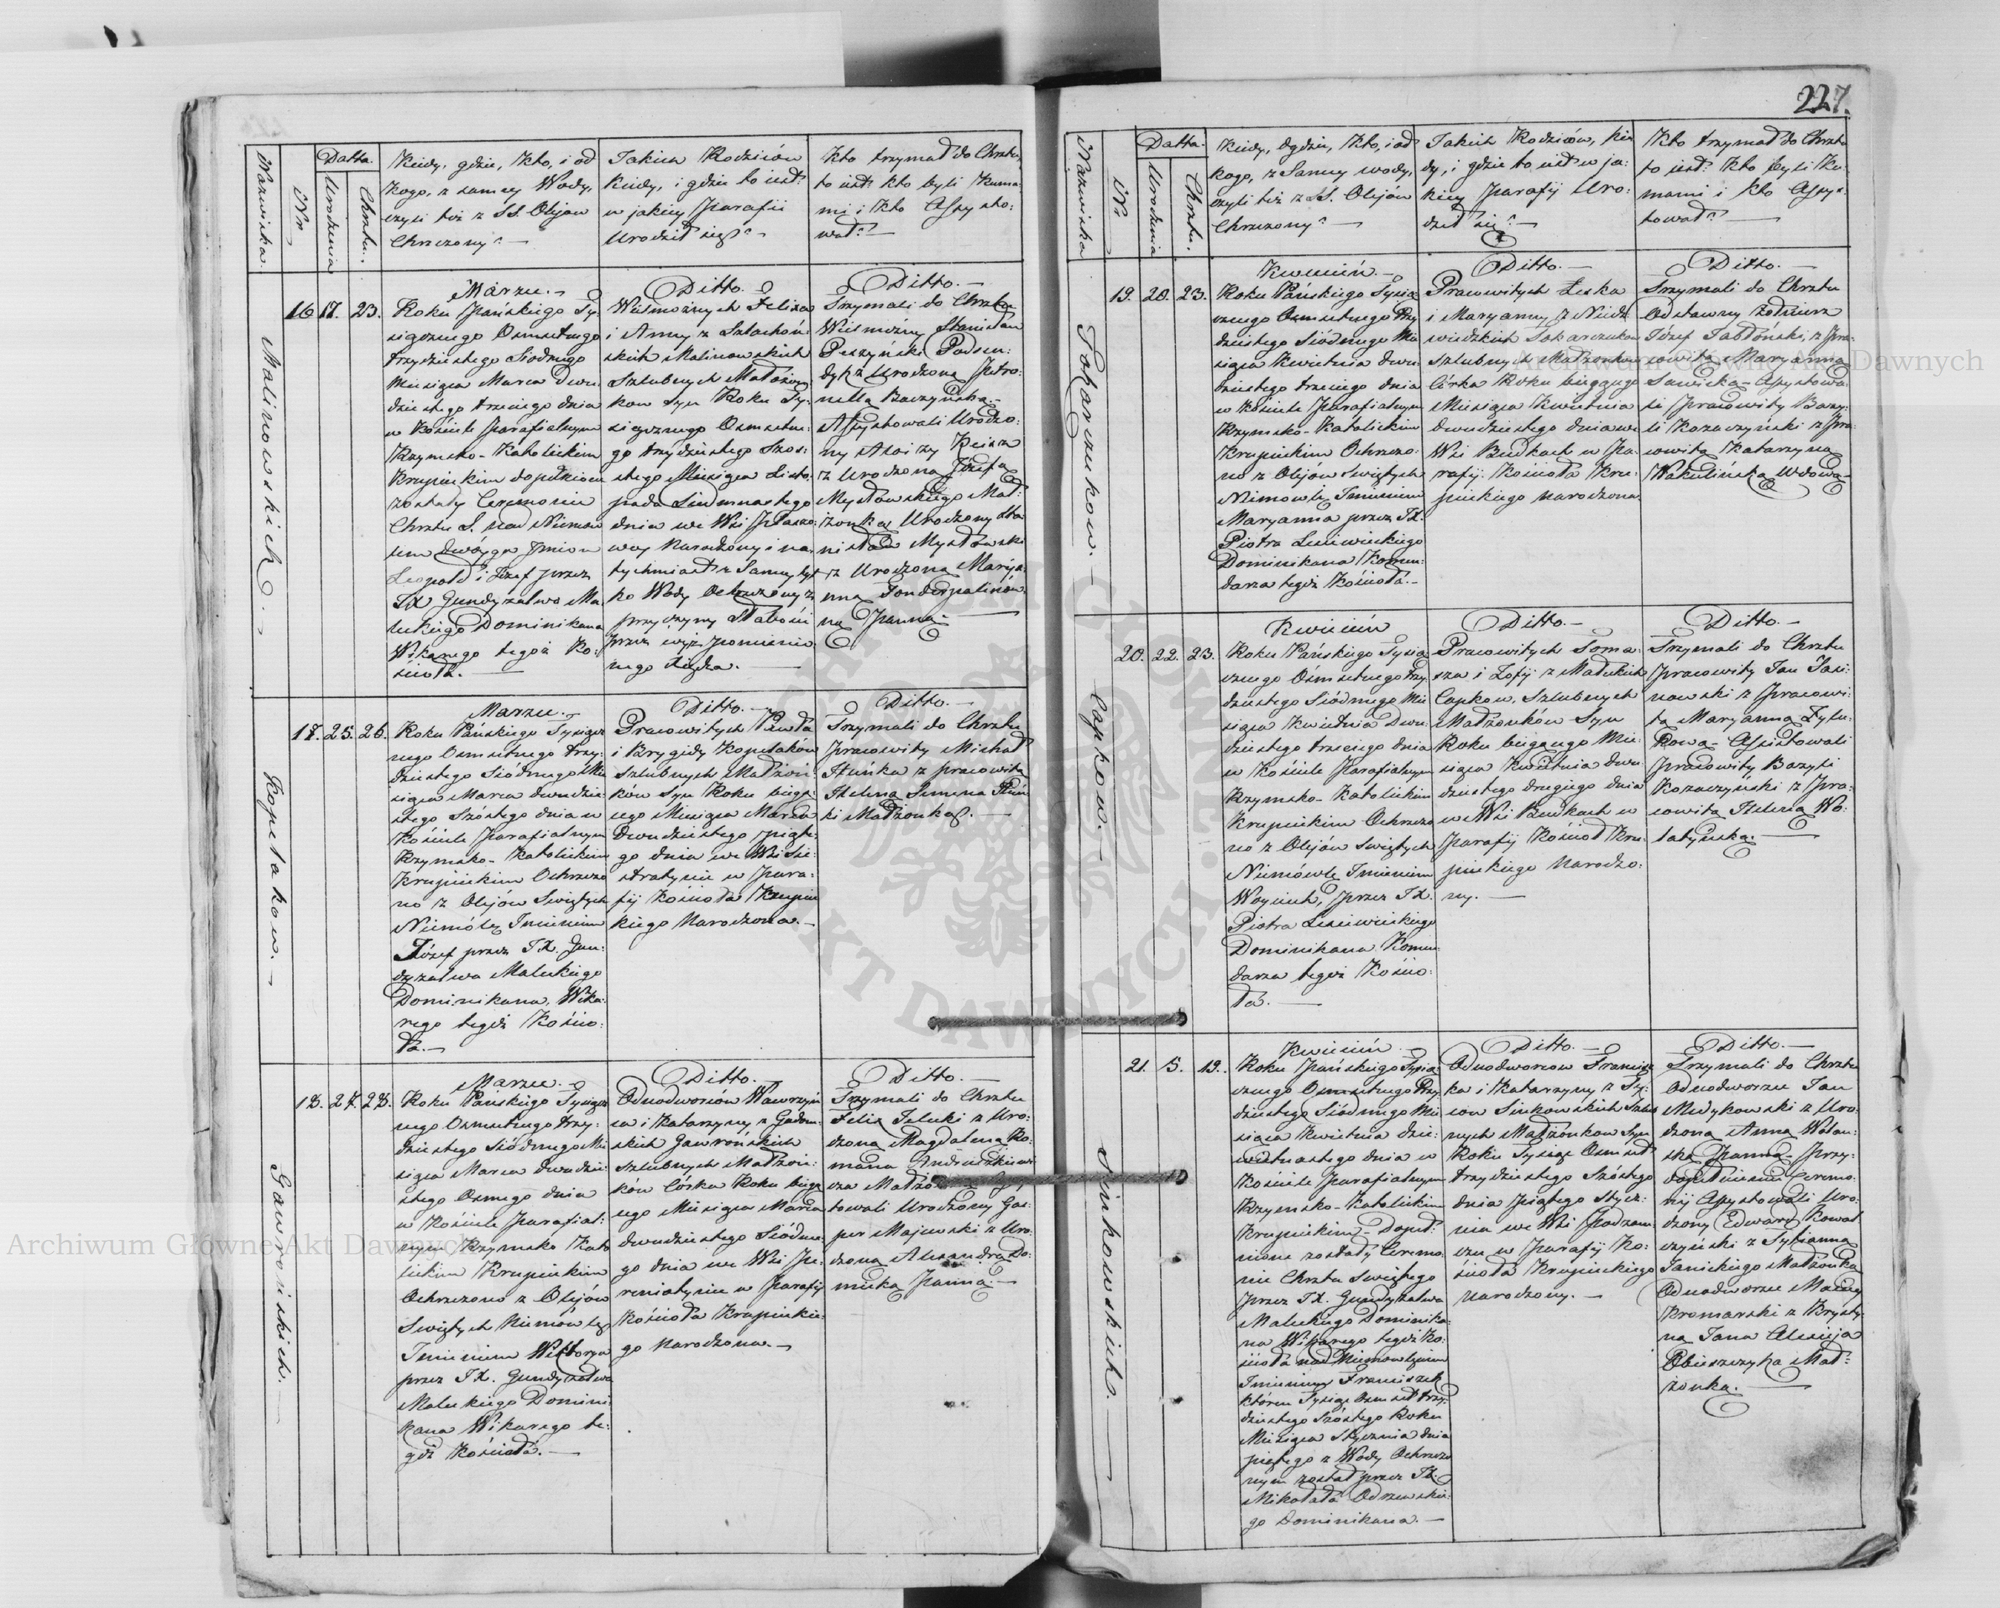 227.
Nazwiska.
Nr
Datta.
Urodzenia
Chrztu.
Kiedy, gdzie, Kto, i od
Kogo, z samey Wody,
czyli też z SS. Olijow
Chrzczony? —
Jakich Rodziców
kiedy, i gdzie to iest:
w jakiey Parafii
Urodził się? —
Kto trzymał do Chrztu,
to iest kto byli Kuma:
mi i Kto Assysto:
wał? —
Malinowskich. —
16
17.
23.
Marzec. —
Roku Pańskiego Ty:
siącznego Osmsetnego
trzydziestego Siodmego
Miesiąca Marca dwu:
dziestego trzeciego dnia
w Kościele Parafialnym
Rzymsko-Katolickim
Krupieckim dopełnione
zostały Ceremonie
Chrztu S. nad Niemow
lem dwóyga Jmion
Leopold i Józef przez
JX Gundyzalwa Ma
luckiego Dominikana
Wikarego tegoż Ko:
scioła. —
Ditto. —
Wielmożnych Felixa
i Anny z Szlachciń
skich Malinowskich
Szlubnych Małżon
kow Syn Roku Ty:
siącznego Osmsetne:
go trzydziestego Szos:
stego Miesiąca Listo:
pada Siedmnastego
dnia we Wsi
Narodzony i na:
tychmiast z Samey tyl
ko Wody Ochrzczony z
przyczyny Słabości
przez wyż pomienio:
nego Xiędza. —
Ditto. —
Trzymali do Chrztu
Wielmożny Stanisław
Peszyński Podsę:
dek z Urodzoną Petro:
nellą Baczyńską —
Assystowali Urodzo:
ny Aloizy
z Urodzoną Józefą
Mysłowskiego Mał:
żonką Urodzony Sta:
nisław Mysłowski
z Urodzoną Marya:
nną
ną Panną. —
Kopciakow. —
17.
25.
26.
Marzec. —
Roku Pańskiego Tysiącz
nego Osmsetnego trzy:
dziestego Siódmego Mie
siąca Marca dwudzie:
stego Szóstego dnia w
Kościele Parafialnym
Rzymsko-Katolickim
Krupieckim Ochrzczo
no z Olejów Swiętych
Niemowlę Imieniem
Józef przez JX. Gun:
dyzalwa Maluckiego
Dominikana, Wika:
rego tegoż Kościo:
ła. —
Ditto. —
Pracowitych Pawła
i Brygidy Kopciaków
Szlubnych Małżon:
ków Syn Roku bieżą:
cego Miesiąca Marca
Dwudziestego piąte:
go dnia we Wsi Sie:
stratynie w Para:
fij Kościoła Krupiec
kiego Narodzona. —
Ditto. —
Trzymali do Chrztu
Pracowity Michał
Huńka z pracowitą
Heleną
Małżonką. —
Gawrońskich. —
18.
27.
28.
Marzec. —
Roku Pańskiego Tysiącz
nego Osmsetnego trzy:
dziestego Siódmego Mie
siąca Marca dwudzie:
stego Osmego dnia
w Kościele Parafial:
nym Rzymsko Kato
lickim Krupieckim
Ochrzczono z Olejów
Swiętych Niemowlę
Imieniem Wiktorya
przez JX. Gundyzalwa
Maluckiego Domini
kana Wikarego te:
goż Kościoła. —
Ditto. —
Odnodworców Wawrzyń
ca i Katarzyny z Gadom
skich Gawrońskich
Szlubnych Małżon:
ków Córka Roku bieżą
cego Miesiąca Marca
dwudziestego Siódme:
go dnia we Wsi Pe:
reniatynie w Parafij
Kościoła Krupieckie:
go Narodzona. —
Ditto. —
Trzymali do Chrztu
Felix z Uro:
dzoną Magdaleną Ro:
mana Andrzeiewi
cza
towali Urodzony Gas:
per Majewski z Uro:
dzoną Alexandrą
Panną —
Nazwiska.
Nr
Datta.
Urodzenia
Chrztu.
Kiedy, gdzie, Kto, i od
kogo, z Samey wody,
czyli też z SS. Olejów
Chrzczony? —
Jakich Rodziców, kie
dy, i gdzie to iest w ja:
kiey Parafij Uro:
dził się? —
Kto trzymał do Chrztu
to iest: kto byli Ku:
mami i kto Assys:
tował? —
Tokarzukow. —
19.
20.
23.
Kwiecień. —
Roku Pańskiego Tysią
cznego Osmsetnego Trzy
dziestego Siódmego Mie
siąca Kwietnia dwu:
dziestego trzeciego dnia
w Kościele Parafialnym
Rzymsko-Katolickim
Krupieckim Ochrzczo:
no z Olejów Swiętych
Niemowlę Imieniem
Maryanna przez JX.
Piotra Lisiewickiego
Dominikana Komen:
darza tegoż Kościoła. —
Ditto. —
Pracowitych Łeska
i Maryanny z Niedź
wiedzkich Tokarzuków
Szlubnych Małżonkow
Córka Roku bieżącego
Miesiąca Kwietnia
dwudziestego dnia we
Wsi Budkach w Pa:
rafij Kościoła Kru:
pieckiego narodzona.
Ditto. —
Trzymali do Chrztu
Odstawny żołnierz
Józef Jabłoński, z Pra:
cowitą Maryanną
Sawicką — Assystowa:
li Pracowity Bazy:
li Kozaczyński z Pra:
cowitą Katarzyną
Wakulińską Wdową —
Capkow. —
20.
22.
23.
Kwiecień
Roku Pańskiego Tysią
cznego Osmsetnego Trzy
dziestego Siódmego Mie
siąca Kwietnia Dwu:
dziestego trzeciego dnia
w Kościele Parafialnym
Rzymsko-Katolickim
Krupieckim Ochrzczo
no z Olejow Swiętych
Niemowlę Imieniem
Woyciech, przez JX.
Piotra Lisiewickiego
Dominikana Komen
darza tegoż Kościo:
ła. —
Ditto. —
Pracowitych Toma:
sza i Zofij z Małeckich
Capkow, Szlubnych
Małżonków Syn
Roku bieżącego Mie:
siąca Kwietnia dwu:
dziestego drugiego dnia
we Wsi Budkach w
Parafij Kościoł Kru:
pieckiego Narodzo:
ny. —
Ditto. —
Trzymali do Chrztu
Pracowity Jan Jasi:
nowski z Pracowi:
tą Maryanną
Assistowali
Pracowity Bazyli
Kozaczyński z Pra:
cowitą Heleną Wo:
łatyńską. —
Sinkowskich. —
21.
5.
19.
Kwiecień.
Roku Pańskiego Tysią:
cznego Osmsetnego Trzy
dziestego Siódmego Mie
siąca Kwietnia dzie:
więtnastego dnia w
Kościele Parafialnym
Rzymsko-Katolickim
Krupieckim — dopeł:
nione zostały Ceremo:
nie Chrztu Swiętego
przez JX. Gundyzalwa
Maluckiego Dominika:
na Wikarego tegoż Ko:
ścioła nad Niemowlęciem
Imieniem Franciszek
którem Tysiąc Osmset trzy:
dziestego Szóstego Roku
Miesiąca Stycznia dnia
piątego z Wody Ochrzczo
nym został przez JX.
Mikołaia Odrzewskie:
go Dominikana. —
Ditto. —
Odnodworcow Francisz
ka i Katarzyny z Ty:
cow Sinkowskich Szlub
nych Małżonkow Syn
Roku Tysiąc Osmset
trzydziestego Szóstego
dnia piątego Stycz:
nia we Wsi Podzam:
czu w Parafij Ko:
ścioła Krupieckiego
Narodzony. —
Ditto. —
Trzymali do Chrztu
Odnodworzec Jan
Medykowski z Uro:
dzoną Anną Wolan:
ską Panną — Przy
dopełnieniu Ceremo:
nij Assystowali Uro:
dzony Edward Kowal
czyński z Sylianną
Janickiego Małżonką
Odnodworzec Maciey
Kromarski z Krysty:
ną Jana Alexieja
Obieszczyka Mał:
żonką. —
Archiwum Główne Akt Dawnych
Archiwum Główne Akt Dawnych
ARCHIWUM GŁÓWNE AKT DAWNYCH